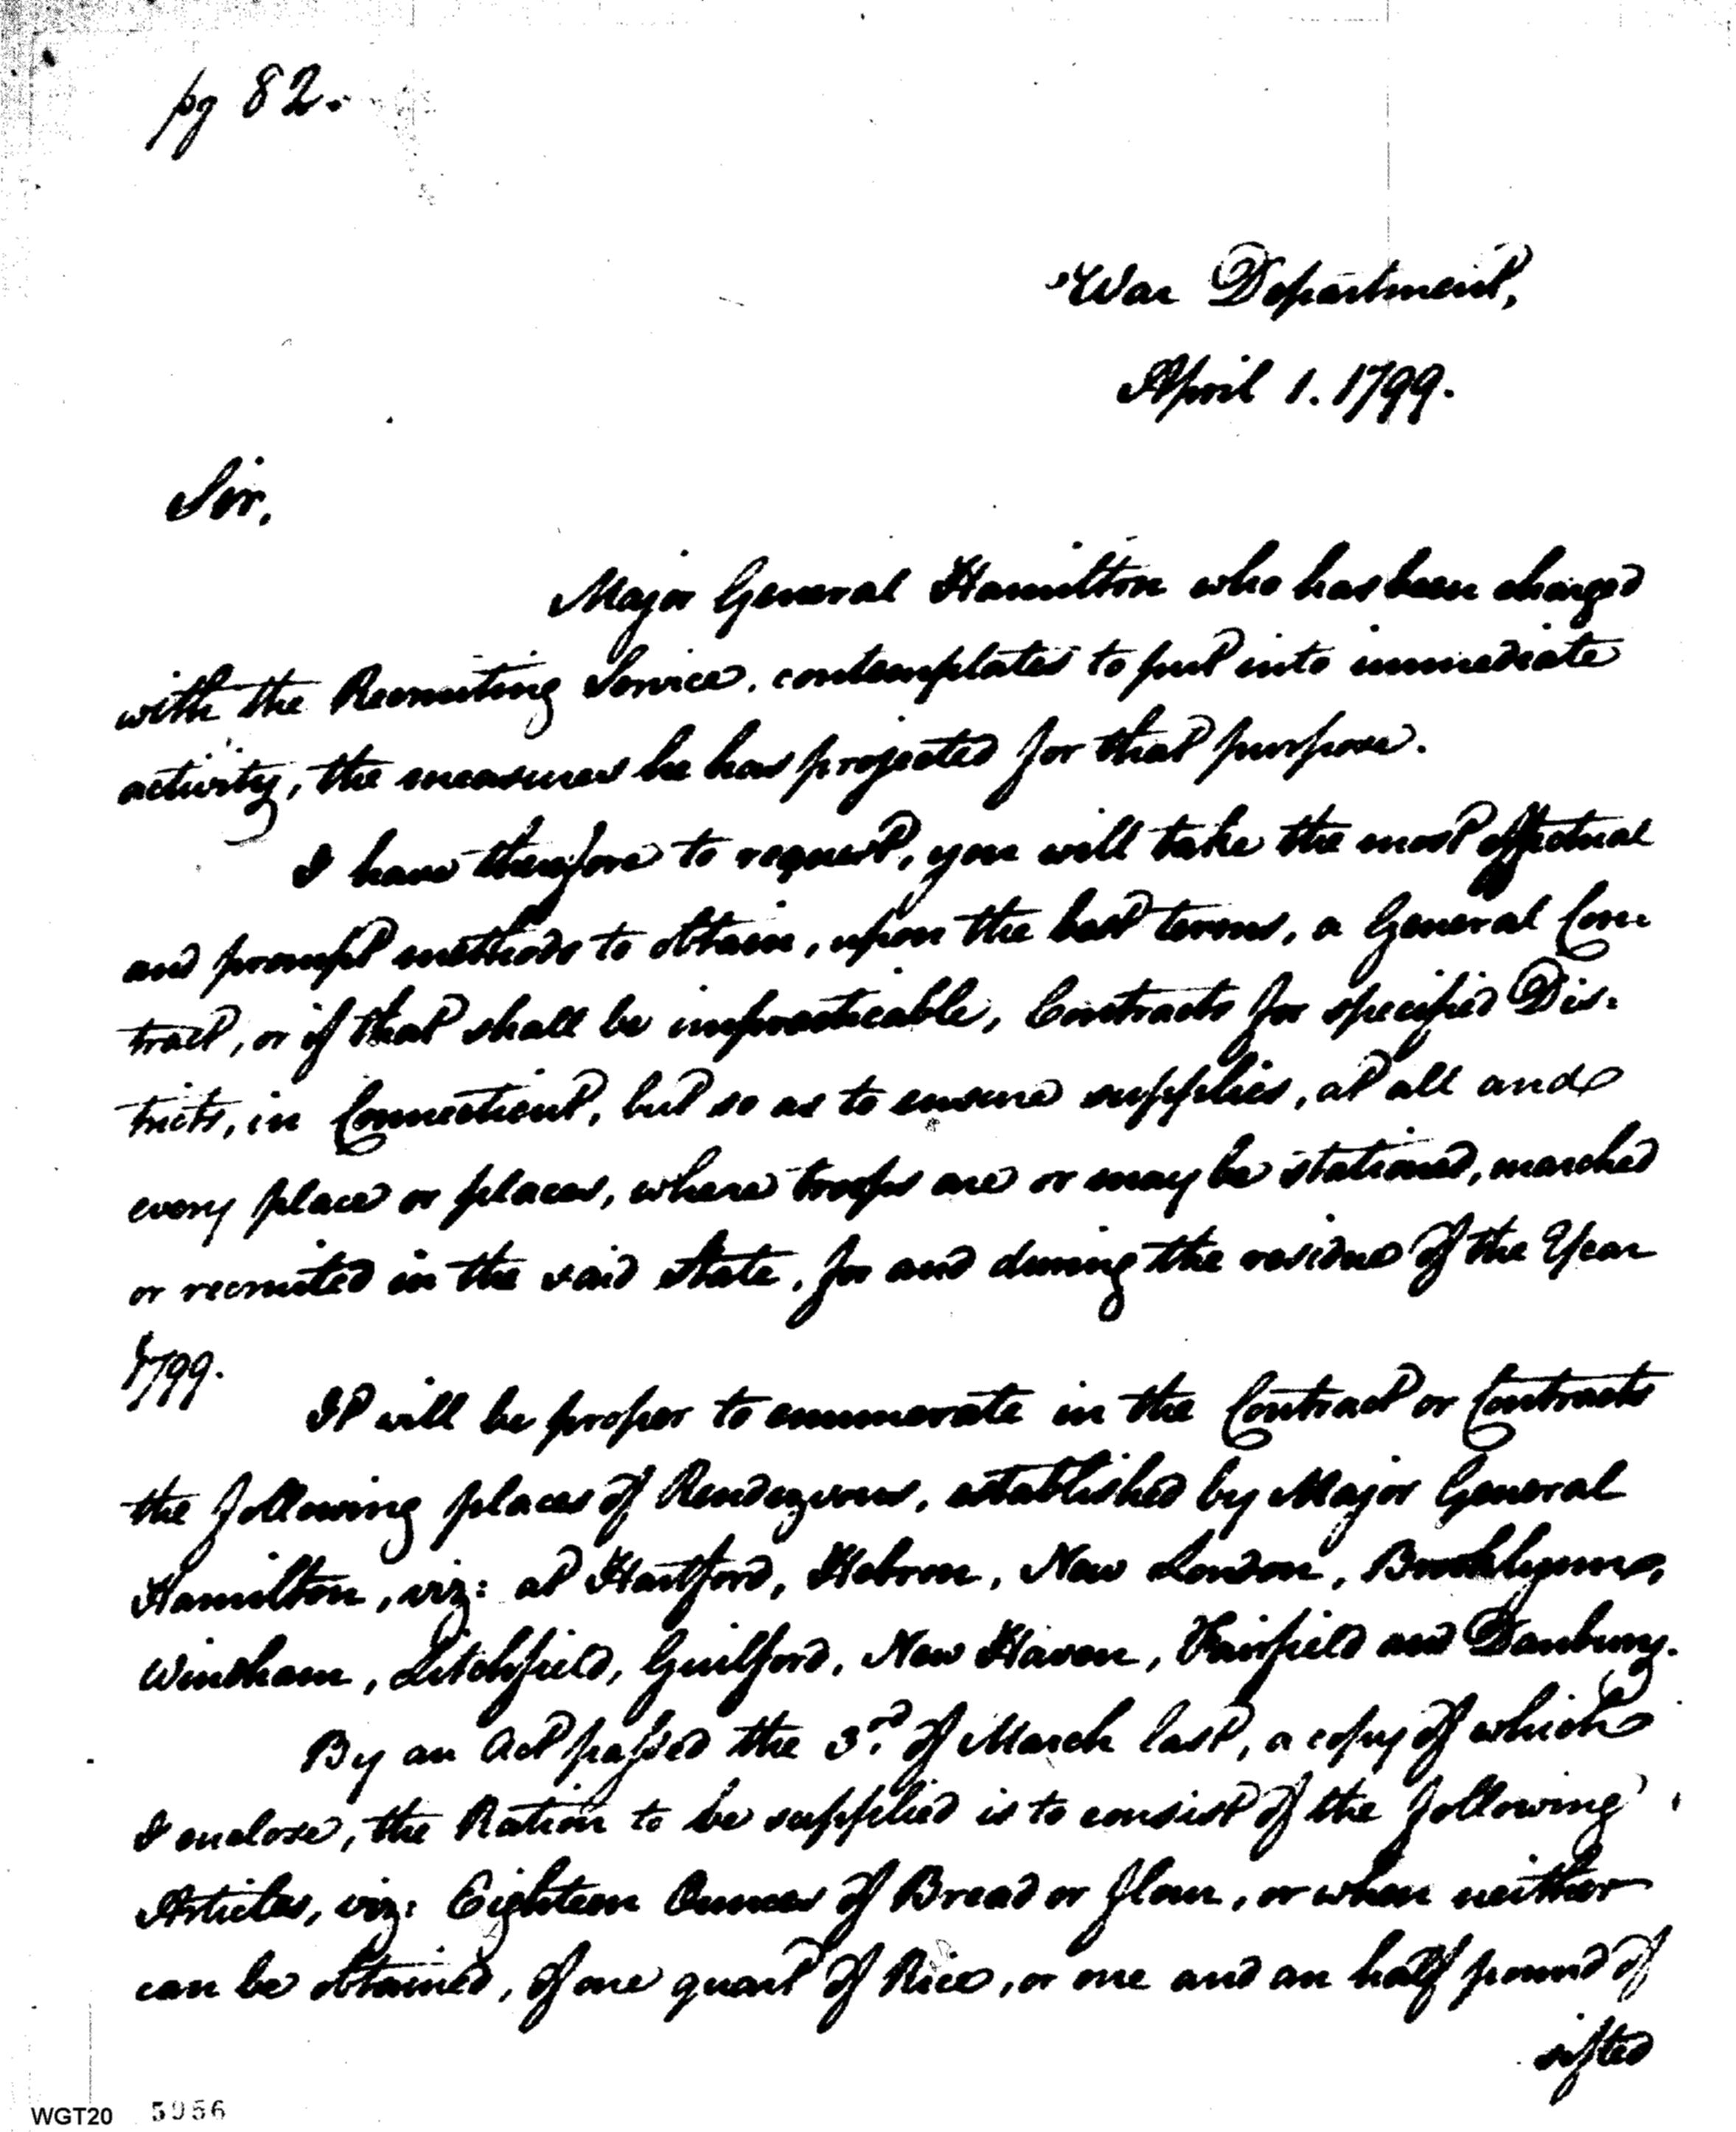 pg 82.
War Department,
April 1. 1799.
Sir,
Major General Hamilton who has been charged
with the Recruiting Service, contemplates to put into immediate
activity, the measures he has projected for that purpose.
I have therefore to request, you will take the most effectual
and prompt methods to obtain, upon the best terms, a General Con
tract, or if that shall be impracticable, Contracts for specified Dis:
tricts, in Connecticut, but so as to ensure supplies, at all and
every place or places, where troops are or may be stationed, marched
or recruited in the said State, for and during the residue of the Year
1799.
It will be proper to enumerate in the Contract or Contracts
the following places of Rendezvous, established by Major General
Hamilton, viz: at Hartford, Hebron, New London, Brooklynne,
Windham, Litchfield, Guilford, New Haven, Fairfield and Danbury.
By an Act passed the 3rd. of March last, a copy of which
I enclose, the Ration to be supplied is to consist of the following
Articles, viz: Eighteen Ounces of Bread or flour, or when neither
can be obtained, of one quart of Rice, or one and an half pound of
sifted
WGT20 5956